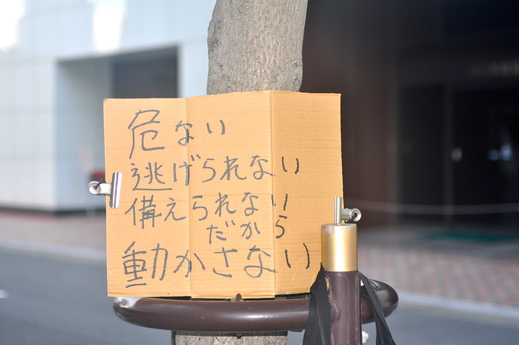 危ない
逃げられない
備えられない
だから
動かさない